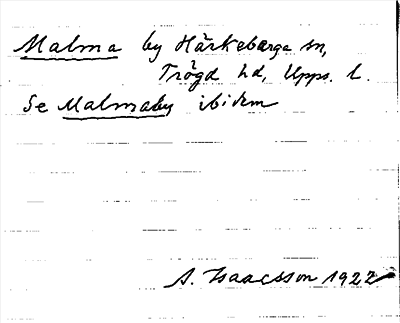 Malma by Härkeberga sn,
Trögd hd, Upps. l.
Se Malmaby ibidem
A. Isaacsson 1922